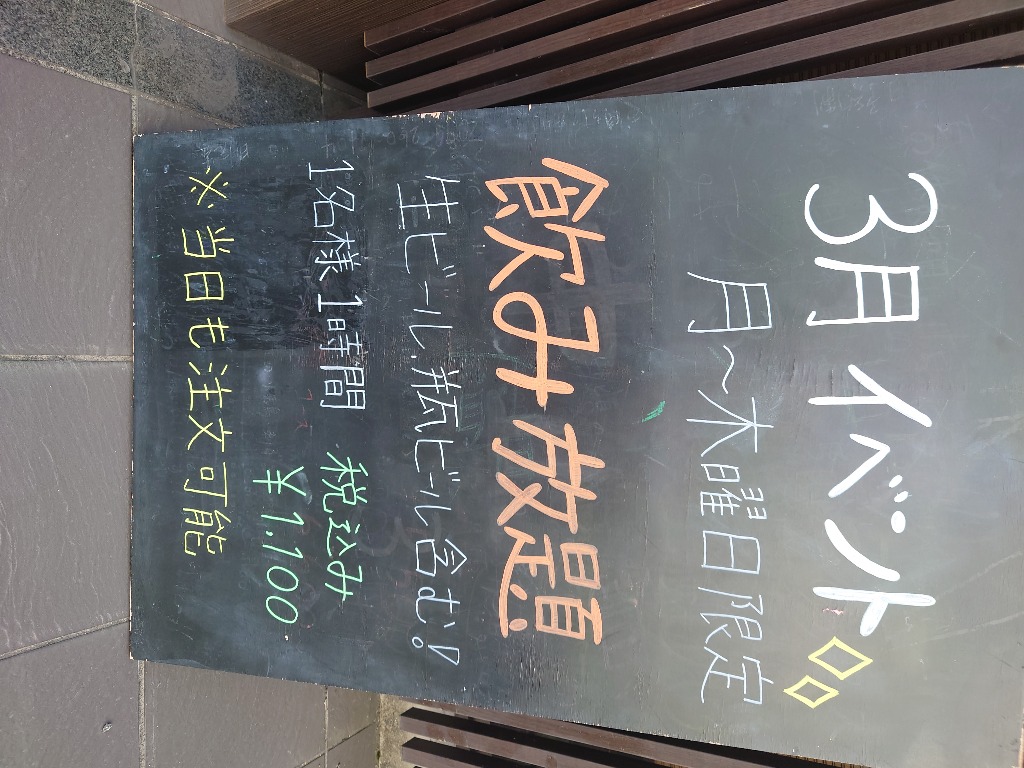 3月イベント
月〜木曜日限定
飲み放題
生ビール、瓶ビール含む！
1名様 1時間 税込み
¥1.100.
※当日も注文可能